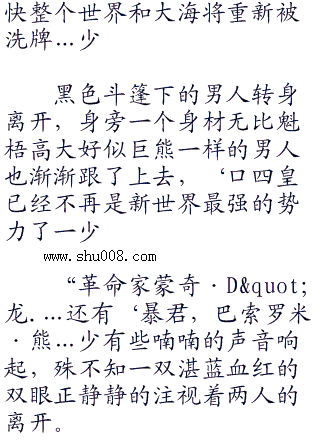 快整个世界和大海将重新被
洗牌…少
黑色斗篷下的男人转身
离开，身旁一个身材无比魁
梧高大好似巨熊一样的男人
也渐渐跟了上去，‘口四皇
已经不再是新世界最强的势
力了一少
www.shu008.com
“革命家蒙奇·D&quot;
龙.…还有‘暴君，巴索罗米
·熊…少有些喃喃的声音响
起，殊不知一双湛蓝血红的
双眼正静静的注视着两人的
离开。